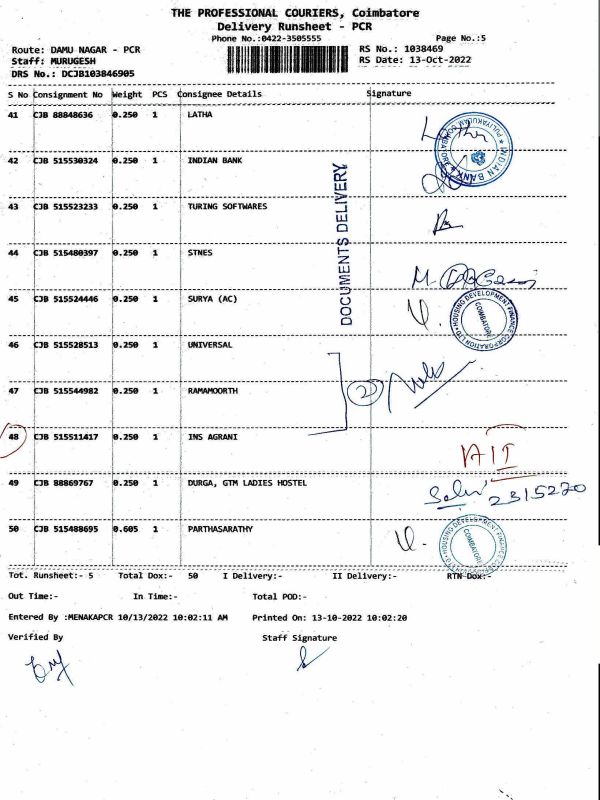 THE PROFESSIONAL COURIERS, Coimbatore
Delivery Runsheet - PCR
Phone No.:0422-3505555
Page No.:5
Route: DAMU NAGAR - PCR
RS No.: 1038469
Staff: MURUGESH
RS Date: 13-Oct-2022
DRS No.: DCJB103846905
S No Consignment No Weight PCS Consignee Details Signature
41 CJB 88848636 0.250 1 LATHA
Latha
PULIYAKULAM COIMBATORE INDIAN BANK
42 CJB 515530324 0.250 1 INDIAN BANK
DOCUMENTS DELIVERY
43 CJB 515523233 0.250 1 TURING SOFTWARES
44 CJB 515480397 0.250 1 STNES
45 CJB 515524446 0.250 1 SURYA (AC)
HOUSING DEVELOPMENT FINANCE CORPORATION LTD COIMBATORE
46 CJB 515528513 0.250 1 UNIVERSAL
2
47 CJB 515544982 0.250 1 RAMAMOORTH
48 CJB 515511417 0.250 1 INS AGRANI
AIT
49 CJB 88869767 0.250 1 DURGA, GTM LADIES HOSTEL
2315270
50 CJB 515488695 0.605 1 PARTHASARATHY
HOUSING DEVELOPMENT FINANCE CORPORATION LTD COIMBATORE
Tot. Runsheet:- 5 Total Dox:- 50 I Delivery:- II Delivery:- RTN Dox:-
Out Time:- In Time:- Total POD:-
Entered By :MENAKAPCR 10/13/2022 10:02:11 AM Printed On: 13-10-2022 10:02:20
Verified By Staff Signature